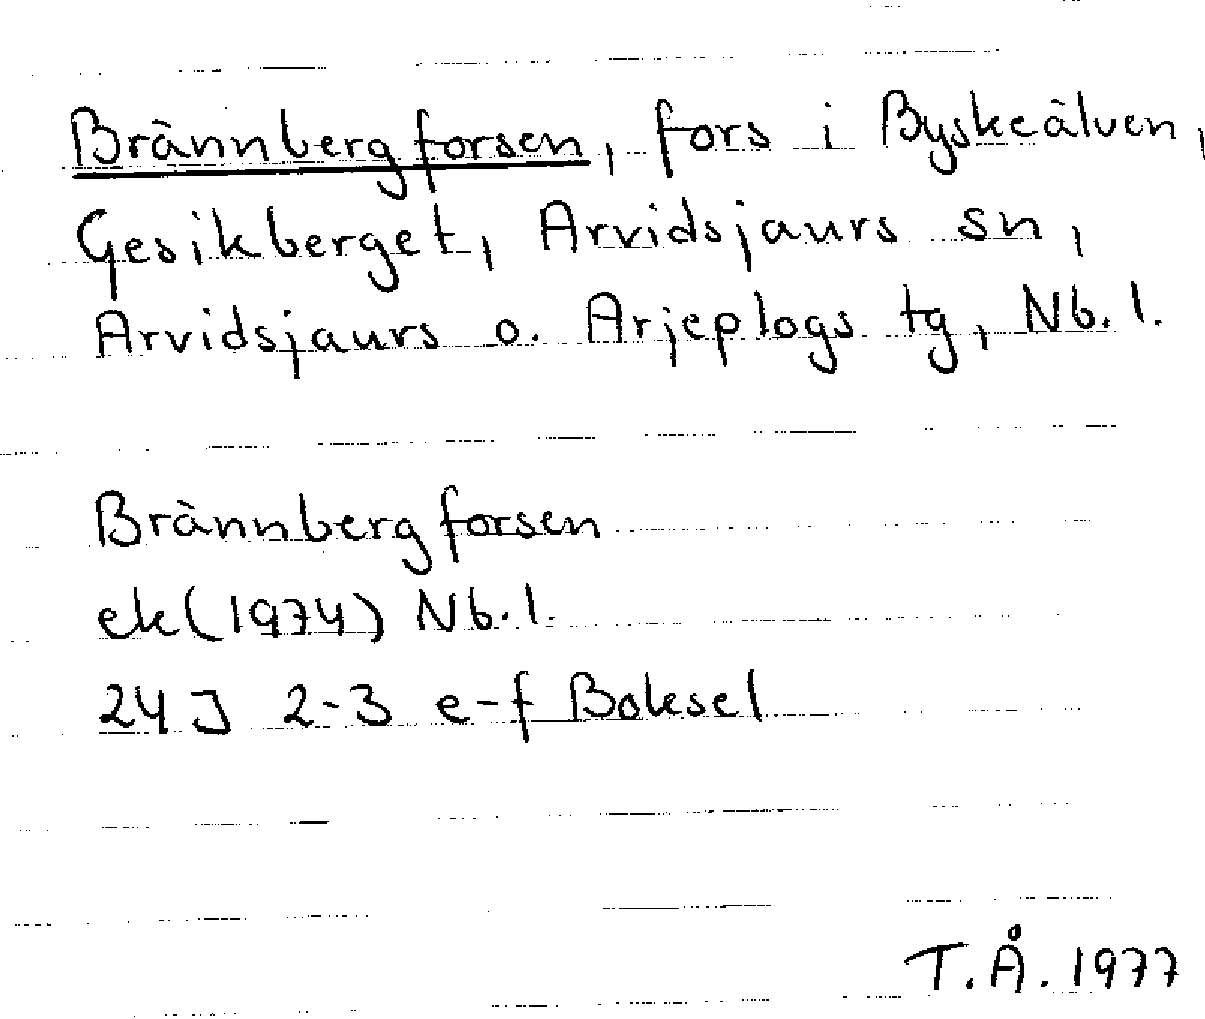 Brännbergforsen, fors i Byskeälven,
Gesikberget, Arvidsjaurs sn,
Arvidsjaurs o. Arjeplogs tg, Nb. l.
Brännbergforsen
ek (1974) Nb. l.
24J 2-3 e-f Boksel
T.Å. 1977